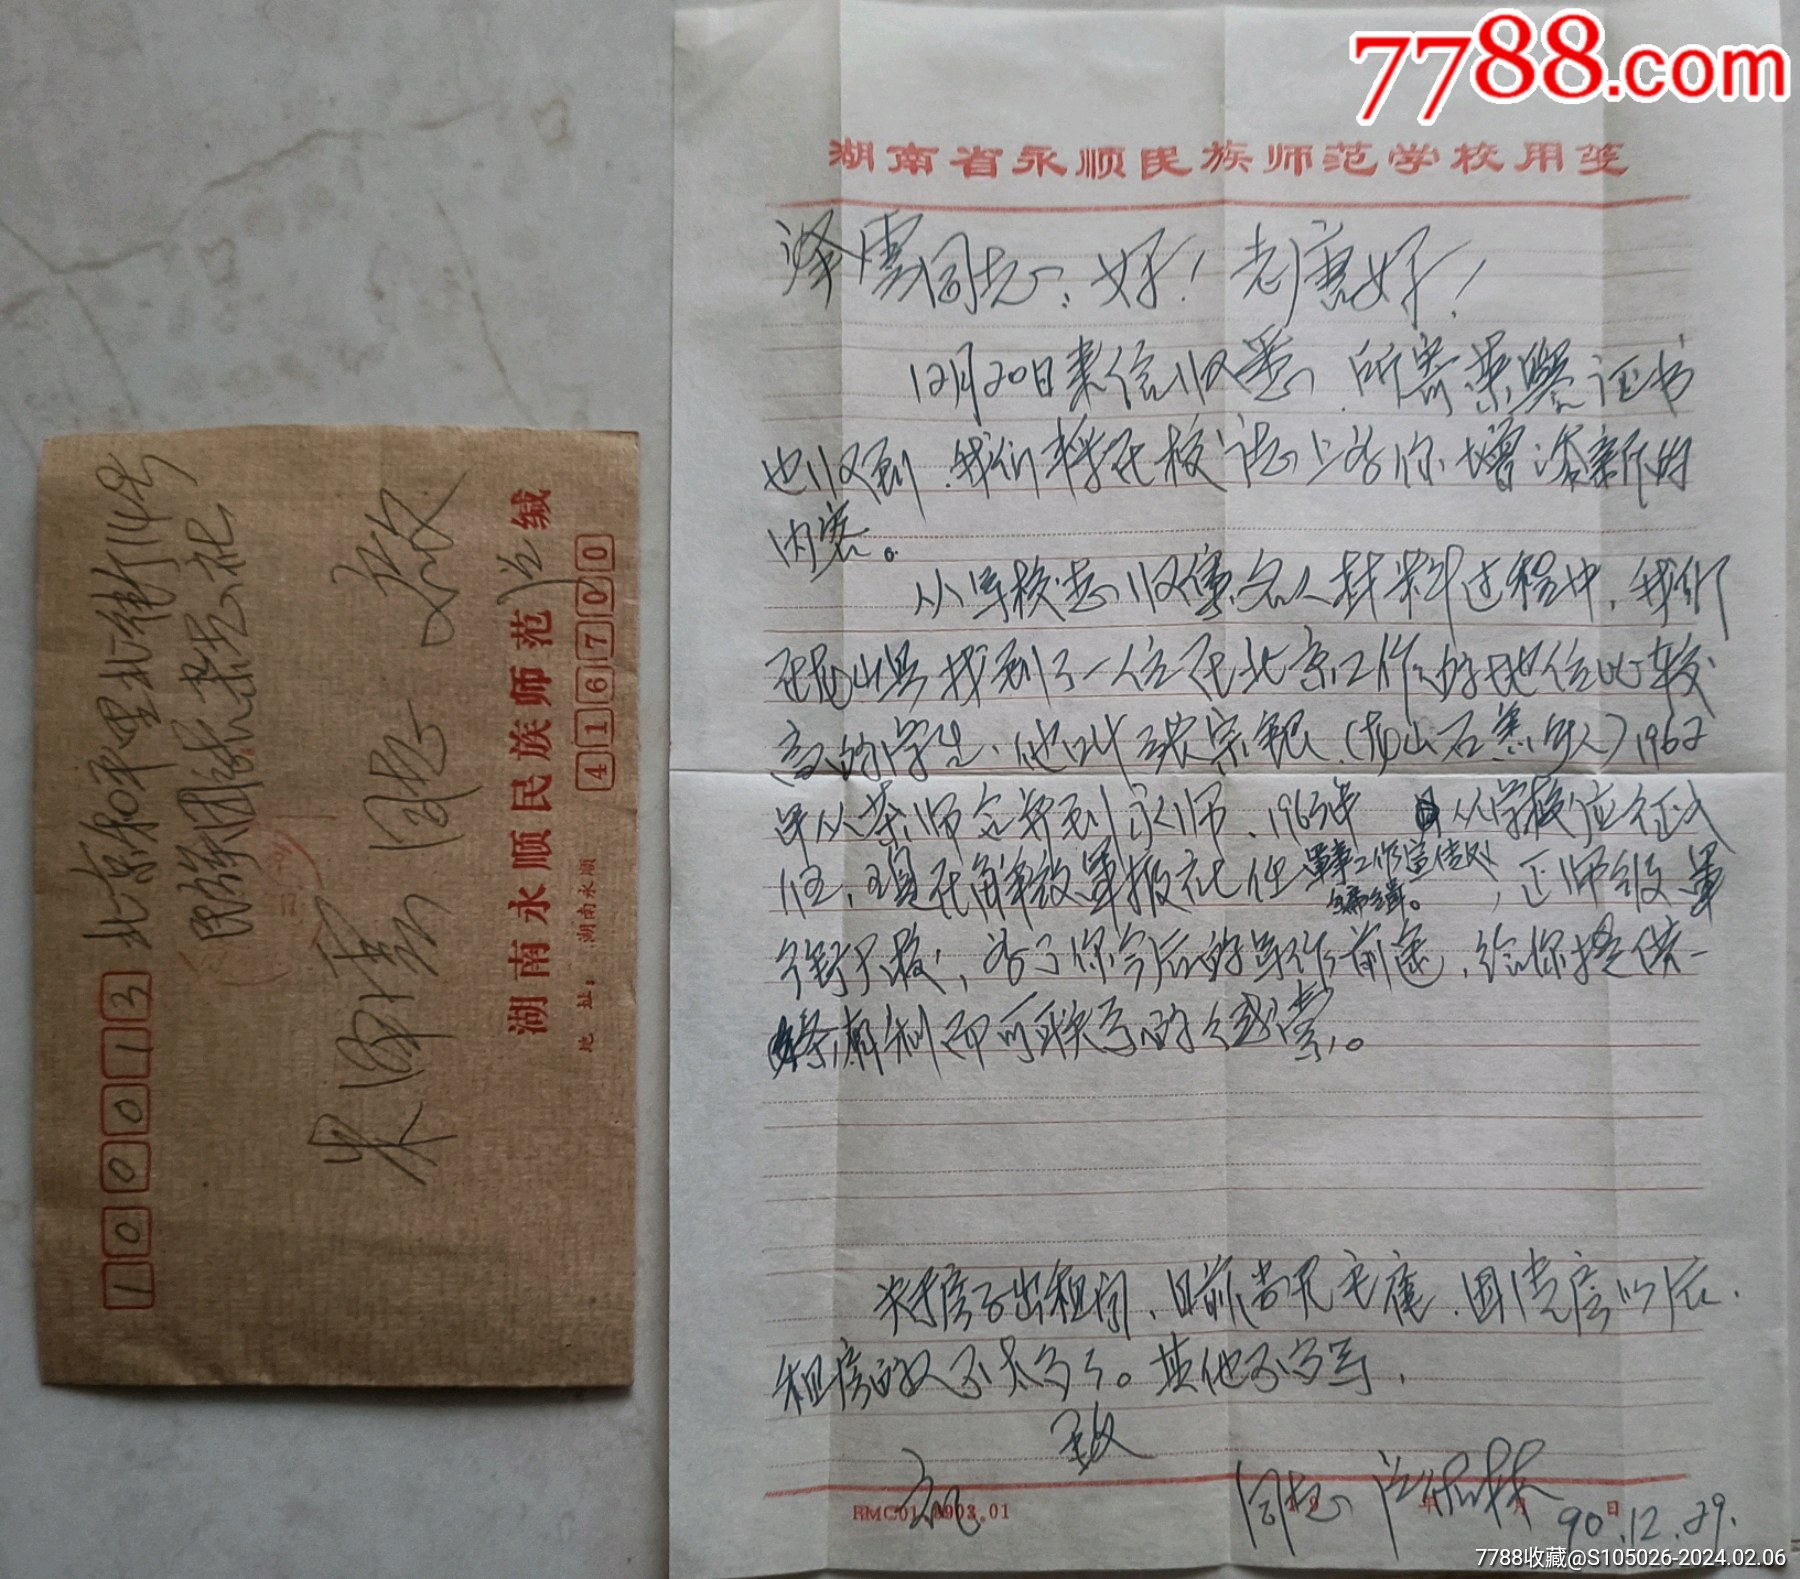 7788.com
湖南省永顺民族师范学校用笺
泽霑同志：好！老唐好！
12月20日来信收悉，所寄荣誉证书
也收到，我们将在校志上为你增添新的
内容。
从写校志收集名人材料过程中，我们
在龙山县找到了一位在北京工作的地位比较
高的学生，他叫张宗银（龙山石羔乡人）1962
年从茶师合并到永师，1963年从学校应征入
伍，现在解放军报社任军事工作宣传处
编辑。，正师级军
衔，为了你今后的写作前途，给你提供一
条有利而可联系的
将房子出租问，目前尚无主雇，因
租房的又不太多了。其他不多写，
致
礼
同志
RMC01.0903.01
年 月 日
90.12.29.
100013
北京和平里北街14号
民族团结杂志社
同志 启
湖南永顺民族师范 缄
地址：湖南永顺
416700
7788收藏@S105026-2024.02.06